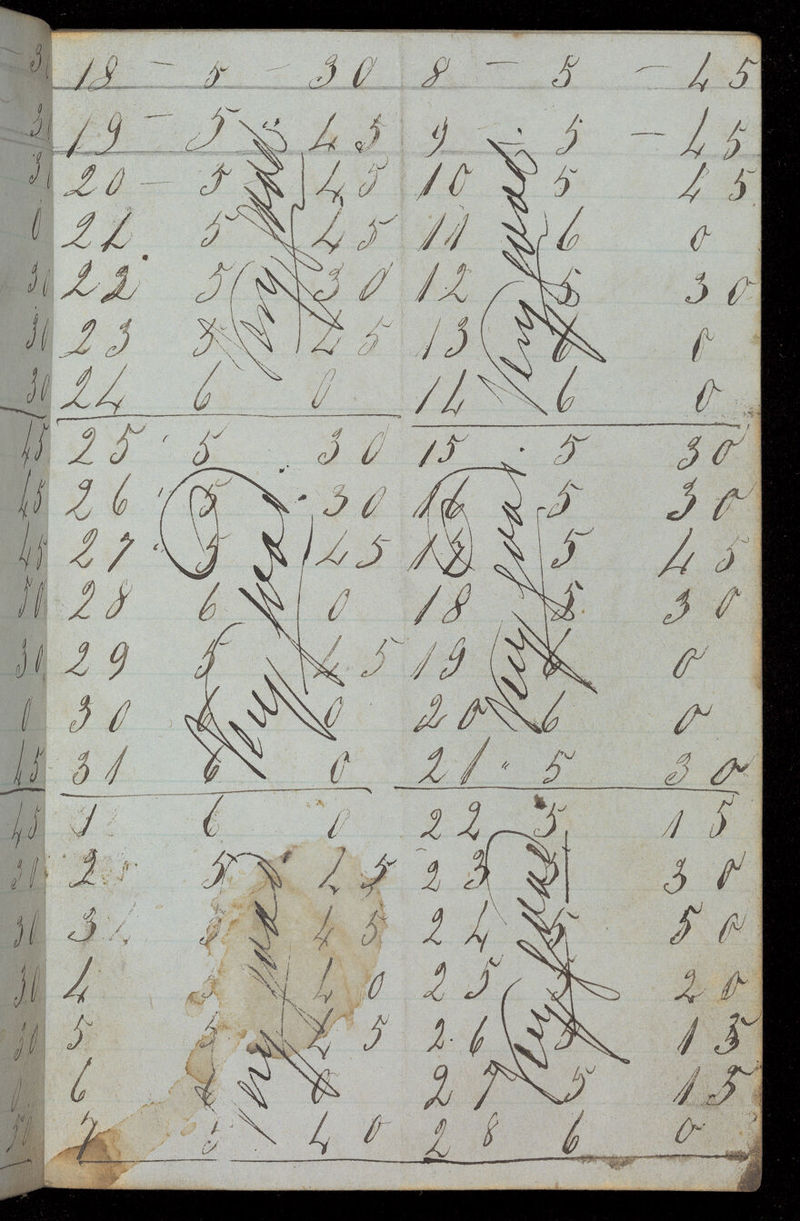 18 — 5 — 30
19 — 5 45
20 — 5 45
21 5 45
22 5 30
23 5 45
24 6 0
Very good.
25 5 30
26 5 30
27 5 45
28 6 0
29 5 45
30 6 0
31 6 0
Very good.
1 6 0
2 5 45
3 5 45
4 40
5 5 45
6 6 0
7 5 40
Very good
8 — 5 — 45
9 5 — 45
10 5 45
11 6 0
12 5 30
13 6 0
14 6 0
Very good.
15 5 30
16 5 30
17 5 45
18 5 30
19 6 0
20 6 0
21 " 5 30
Very good.
22 5 15
23 5 30
24 5 50
25 5 20
26 5 15
27 5 15
28 6 0
Very good
30
30
30
0
30
30
30
45
45
45
50
30
0
45
45
30
30
30
30
0
50